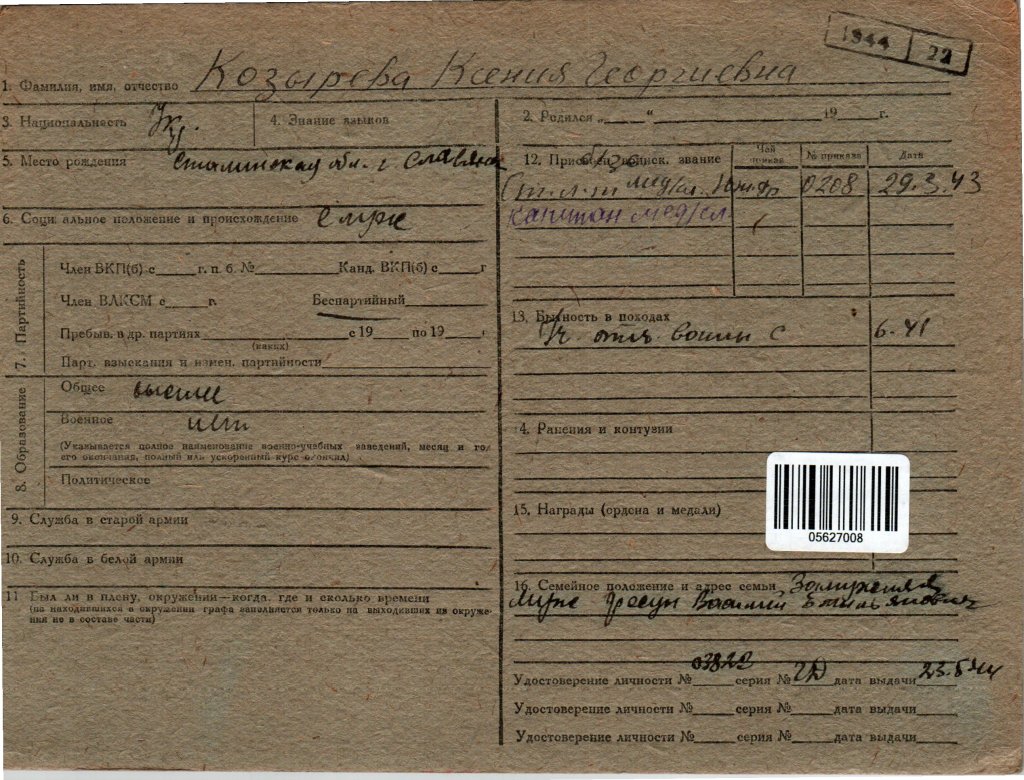 1944 22
1. Фамилия, имя, отчество Козырева Ксения Георгиевна
3. Национальность Укр. 4. Знание языков
5. Место рождения Сталинская обл. г Славянск
6. Социальное положение и происхождение служ
7. Партийность
Член ВКП(б) с г. п. б. № Канд. ВКП(б) с г
Член ВЛКСМ с г. Беспартийный
Пребыв. в др. партиях с 19 по 19 г
(каких)
Парт. взыскания и измен. партийности
8. Образование
Общее высшее
Военное нет
(Указывается полное наименование военно-учебных заведений, месяц и год
его окончания, полный иль ускоренный курс окончил)
Политическое
9. Служба в старой армии
10. Служба в белой армии
11 Был ли в плену, окружении—когда, где и сколько времени
(на находившихся в окружении графа заполняется только на выходивших из окруже-
ния не в составе части)
2. Родился „ “ 19 г.
12. Присвоен воинск. звание Чей приказа № приказа Дата
Ст. л-т мед/сл. 0208 29.3.43
капитан мед/сл.
13. Бытность в походах
Уч. отеч. войны с 6-41
4. Ранения и контузии
15. Награды (ордена и медали)
05627008
16. Семейное положение и адрес семьи Замужняя
Муж Василий Емельянович
Удостоверение личности № 03822 серия ГД дата выдачи 23.5.44
Удостоверение личности № серия № дата выдачи
Удостоверение личности № серия № дата выдачи